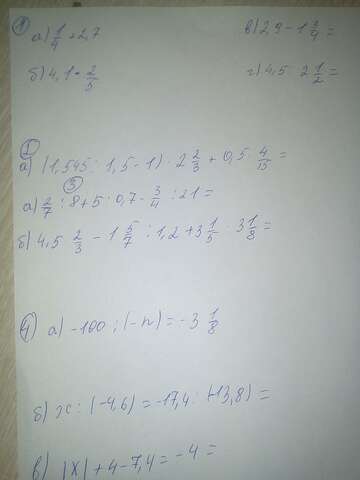 ① а) 1/4 + 2,7 в) 2,9 - 1 3/4 =
б) 4,1 - 2/5 г) 4,5 · 2 1/2 =
② а) (1,545 : 1,5 - 1) · 2 2/3 + 0,5 · 4/15 =
③
а) 2/7 : 8 + 5 · 0,7 - 3/4 : 21 =
б) 4,5 · 2/3 - 1 5/7 : 1,2 + 3 1/5 · 3 1/8 =
④ а) -100 : (-n) = -3 1/8
б) x : (-4,6) = -17,4 : (+13,8) =
в) |x| + 4 - 7,4 = -4 =